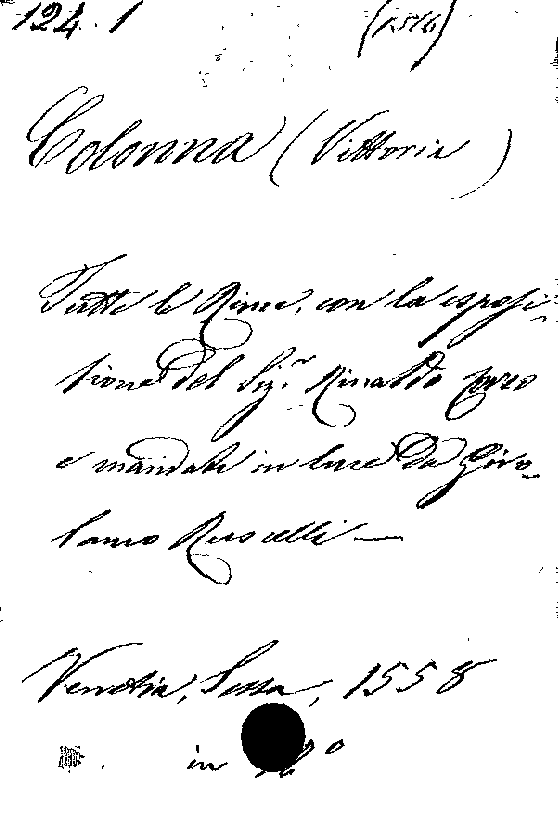 124. 1 (1516)
Colonna (Vittoria)
Tutte le Rime, con la esposi-
tione del Sig.r Rinaldo Corso
e mandate in luce da Giro-
lamo Ruscelli —
Venetia, Sessa, 1558
in